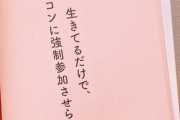 生きてるだけで、
コンに強制参加させら